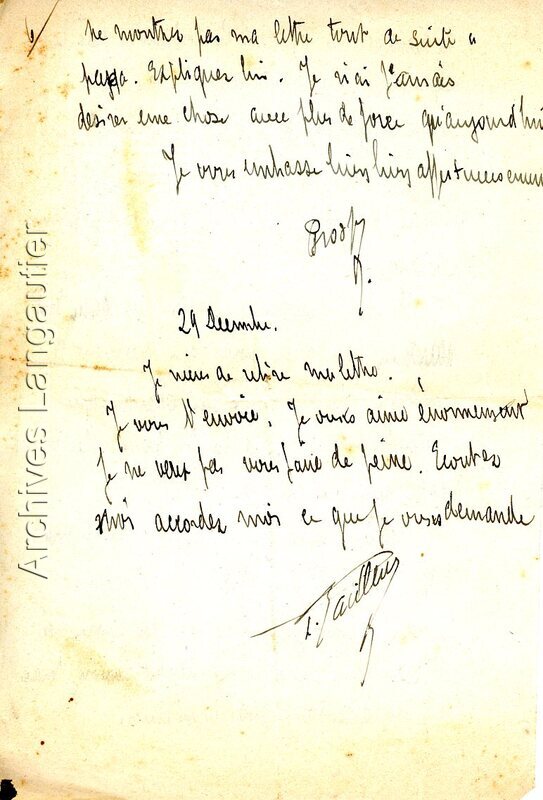 6/
ne montrer pas ma lettre tout de suite a
pappa. Expliquer lui. Je n'ai Jamais
désirer une chose avec plus de force qu'aujourd'hui
Je vous embrasse bien bien affectueusement
29 Decembre.
Je viens de relire ma lettre.
Je vous l'envoie. Je vous aime énormement
Je ne veux pas vous faire de peine. Ecoutez
moi accordez moi ce que Je vous demande
Archives Langautier